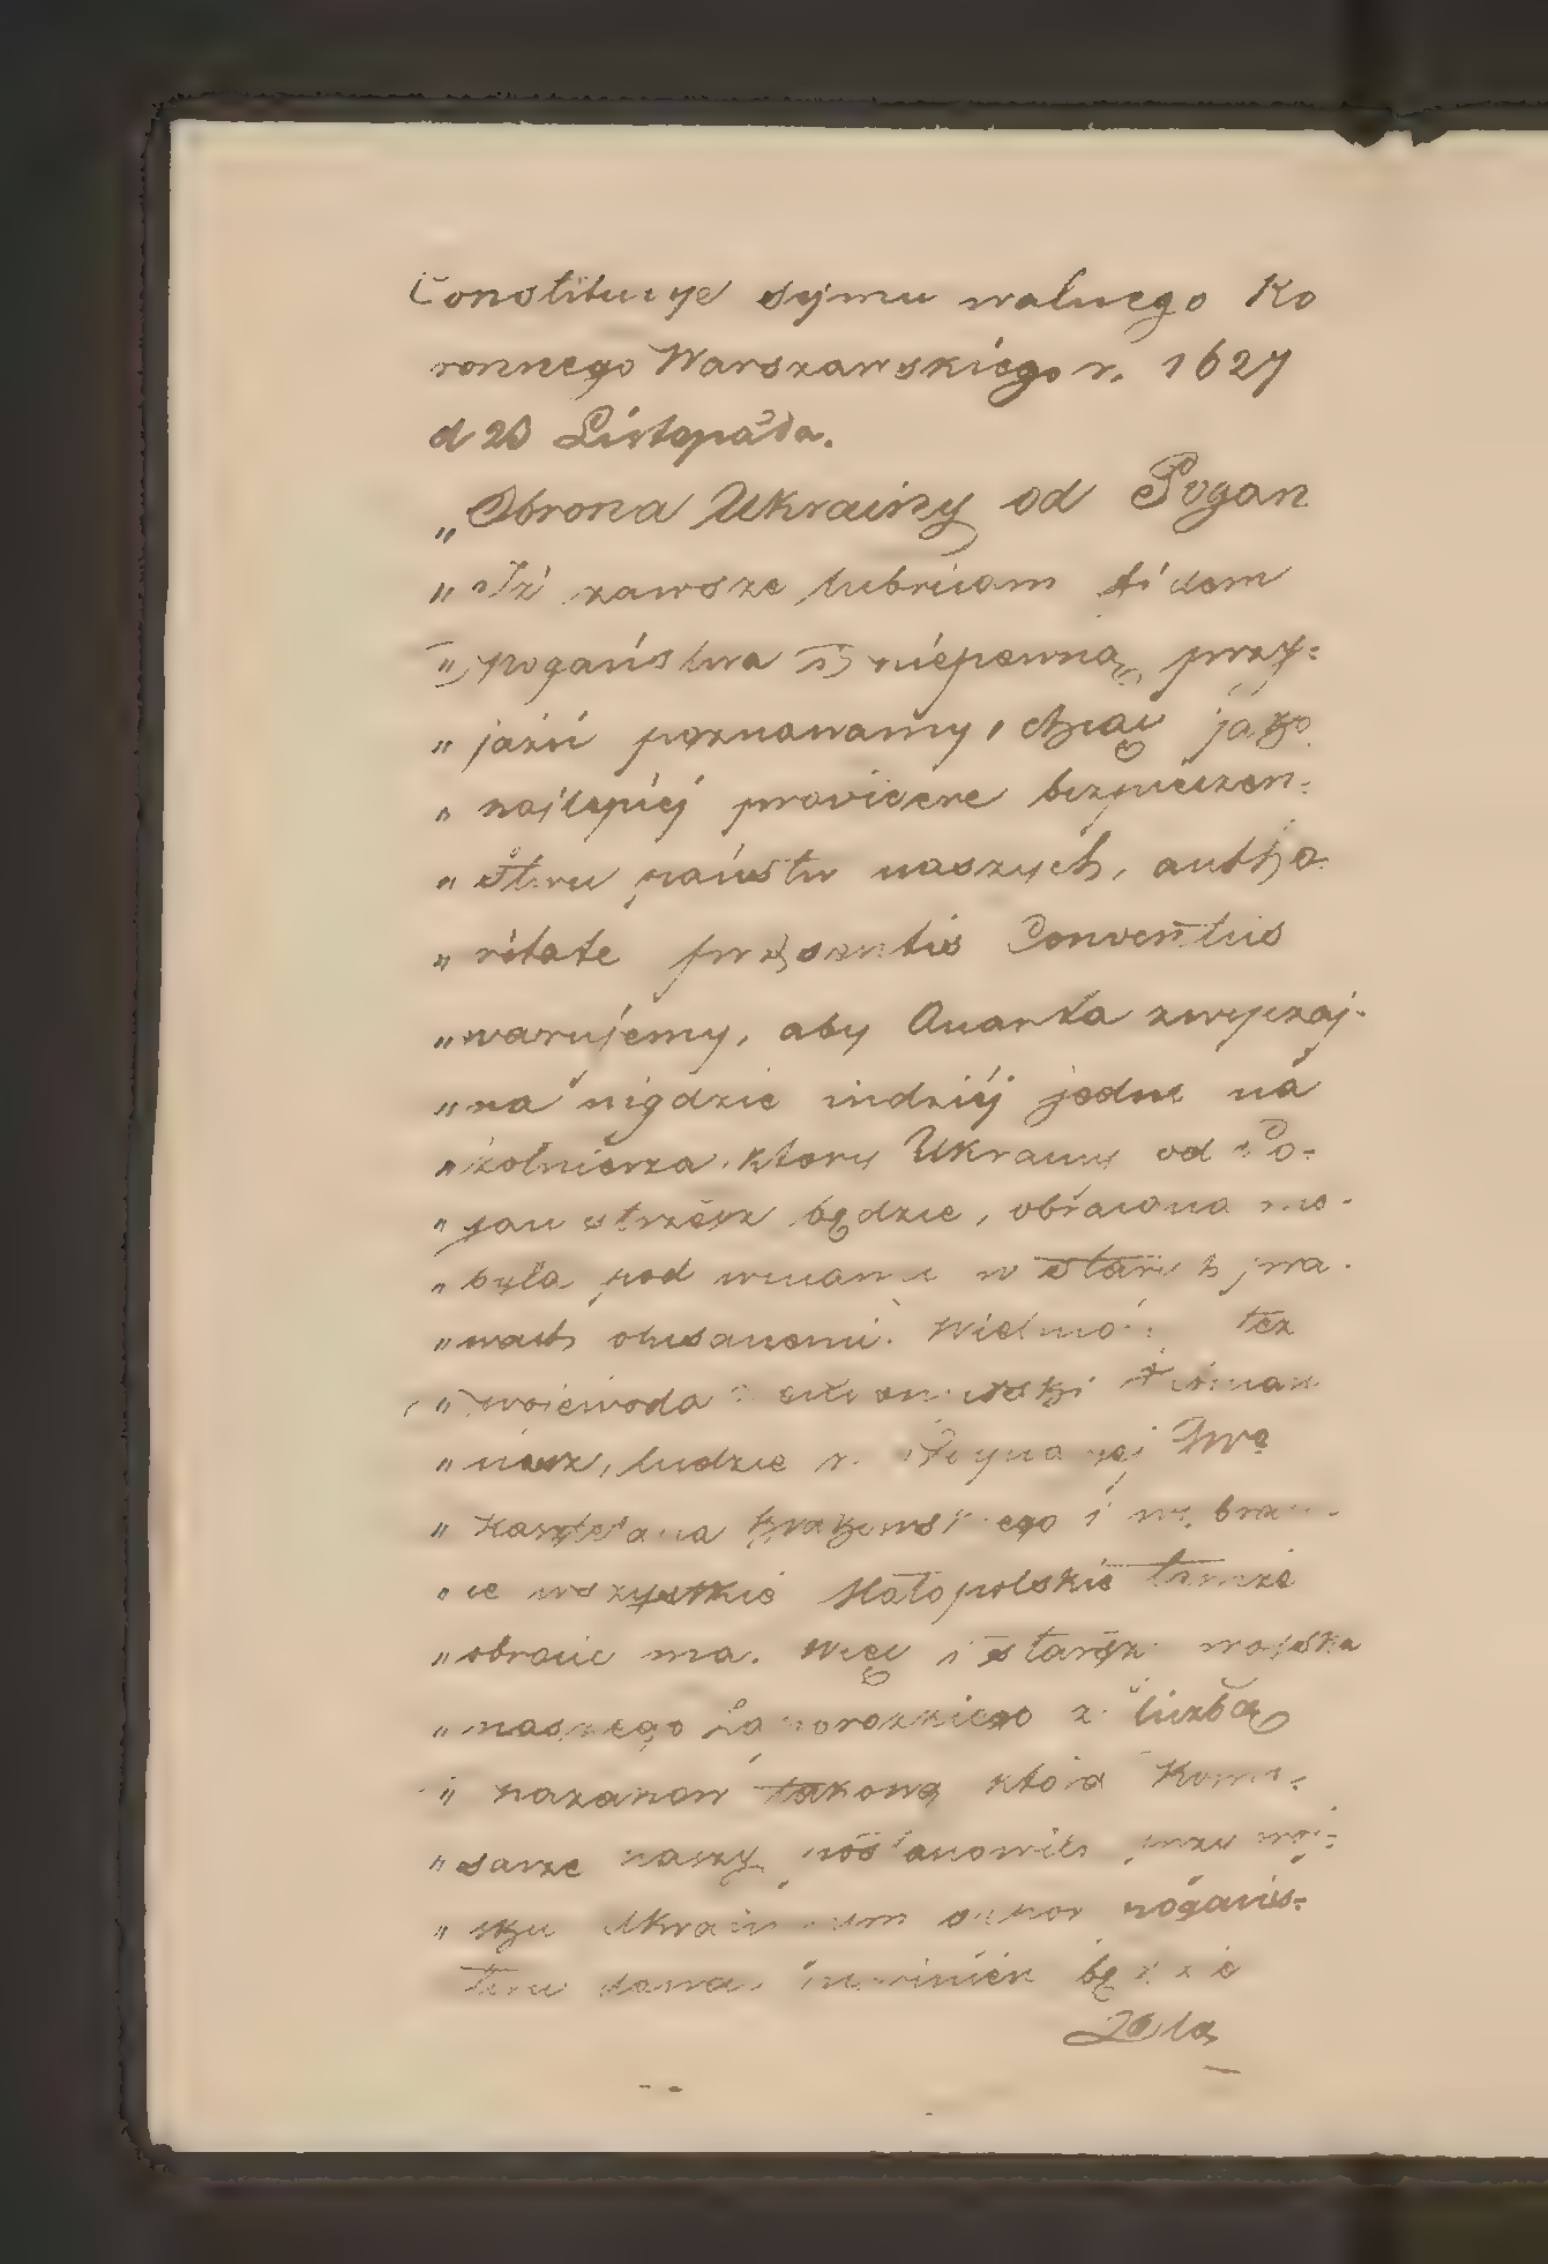 Constitucye sejmu walnego Ko
ronnego Warszawskiego r. 1627
d 20 Listopada.
„Obrona Ukrainy od Pogan
„ Iż zawsze lubricam fidem
„ pogaństwa i niepewną przy=
„ jaźń poznawamy, chcąc jako
„ najlepiej providere bezpieczeń=
„ stwu państw naszych, autho
„ ritate præsentis Conventus
„ warujemy, aby Quarta zwyczaj-
„ na nigdzie indziéj jedne na
„ żołnierza, ktory Ukrainy od Po-
„ gan strzedz będzie, obracana nie-
„ była pod winami w starych pra-
„ wach opisanemi. też
„ wojewoda Hetman
„ nasz, ludzie
„ Kasztelana Krakowskiego i
„ ie wszystkie Małopolskie tamże
„ obrocic ma. Więc i starszy wojska
„ naszego Zaporozkiego z liczbą
„ kozakow takową która Kommi=
„ sarze naszy postanowili przy woj=
„ sku odpor pogańs=
twu dawać powinien będzie